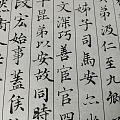 弟汲仁至九卿
姊子司馬安亦少
文深巧善宦官四
昆弟以安故同時
段宏始事蓋侯